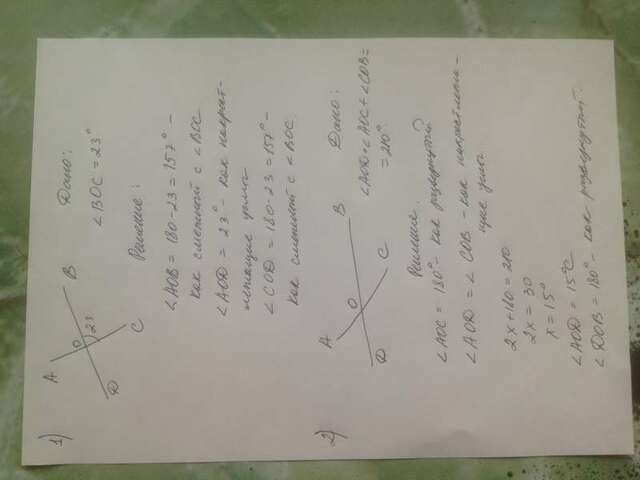 1)
A
B
O
23
D
C
Дано:
∠BOC = 23°
Решение:
∠AOB = 180-23 = 157° -
как смежный с ∠BOC
∠AOD = 23° - как накрест-
лежащие углы
∠COD = 180-23 = 157° -
как смежный с ∠BOC.
2)
A
B
O
D
C
Дано:
∠AOD+∠AOC+∠COB=
= 210°
Решение.
∠AOC = 180° - как развернутый
∠AOD = ∠COB - как накрестлежа-
щие углы
2x+180 = 210
2x = 30
x = 15°
∠AOD = 15°C
∠DOB = 180° - как развернутый.